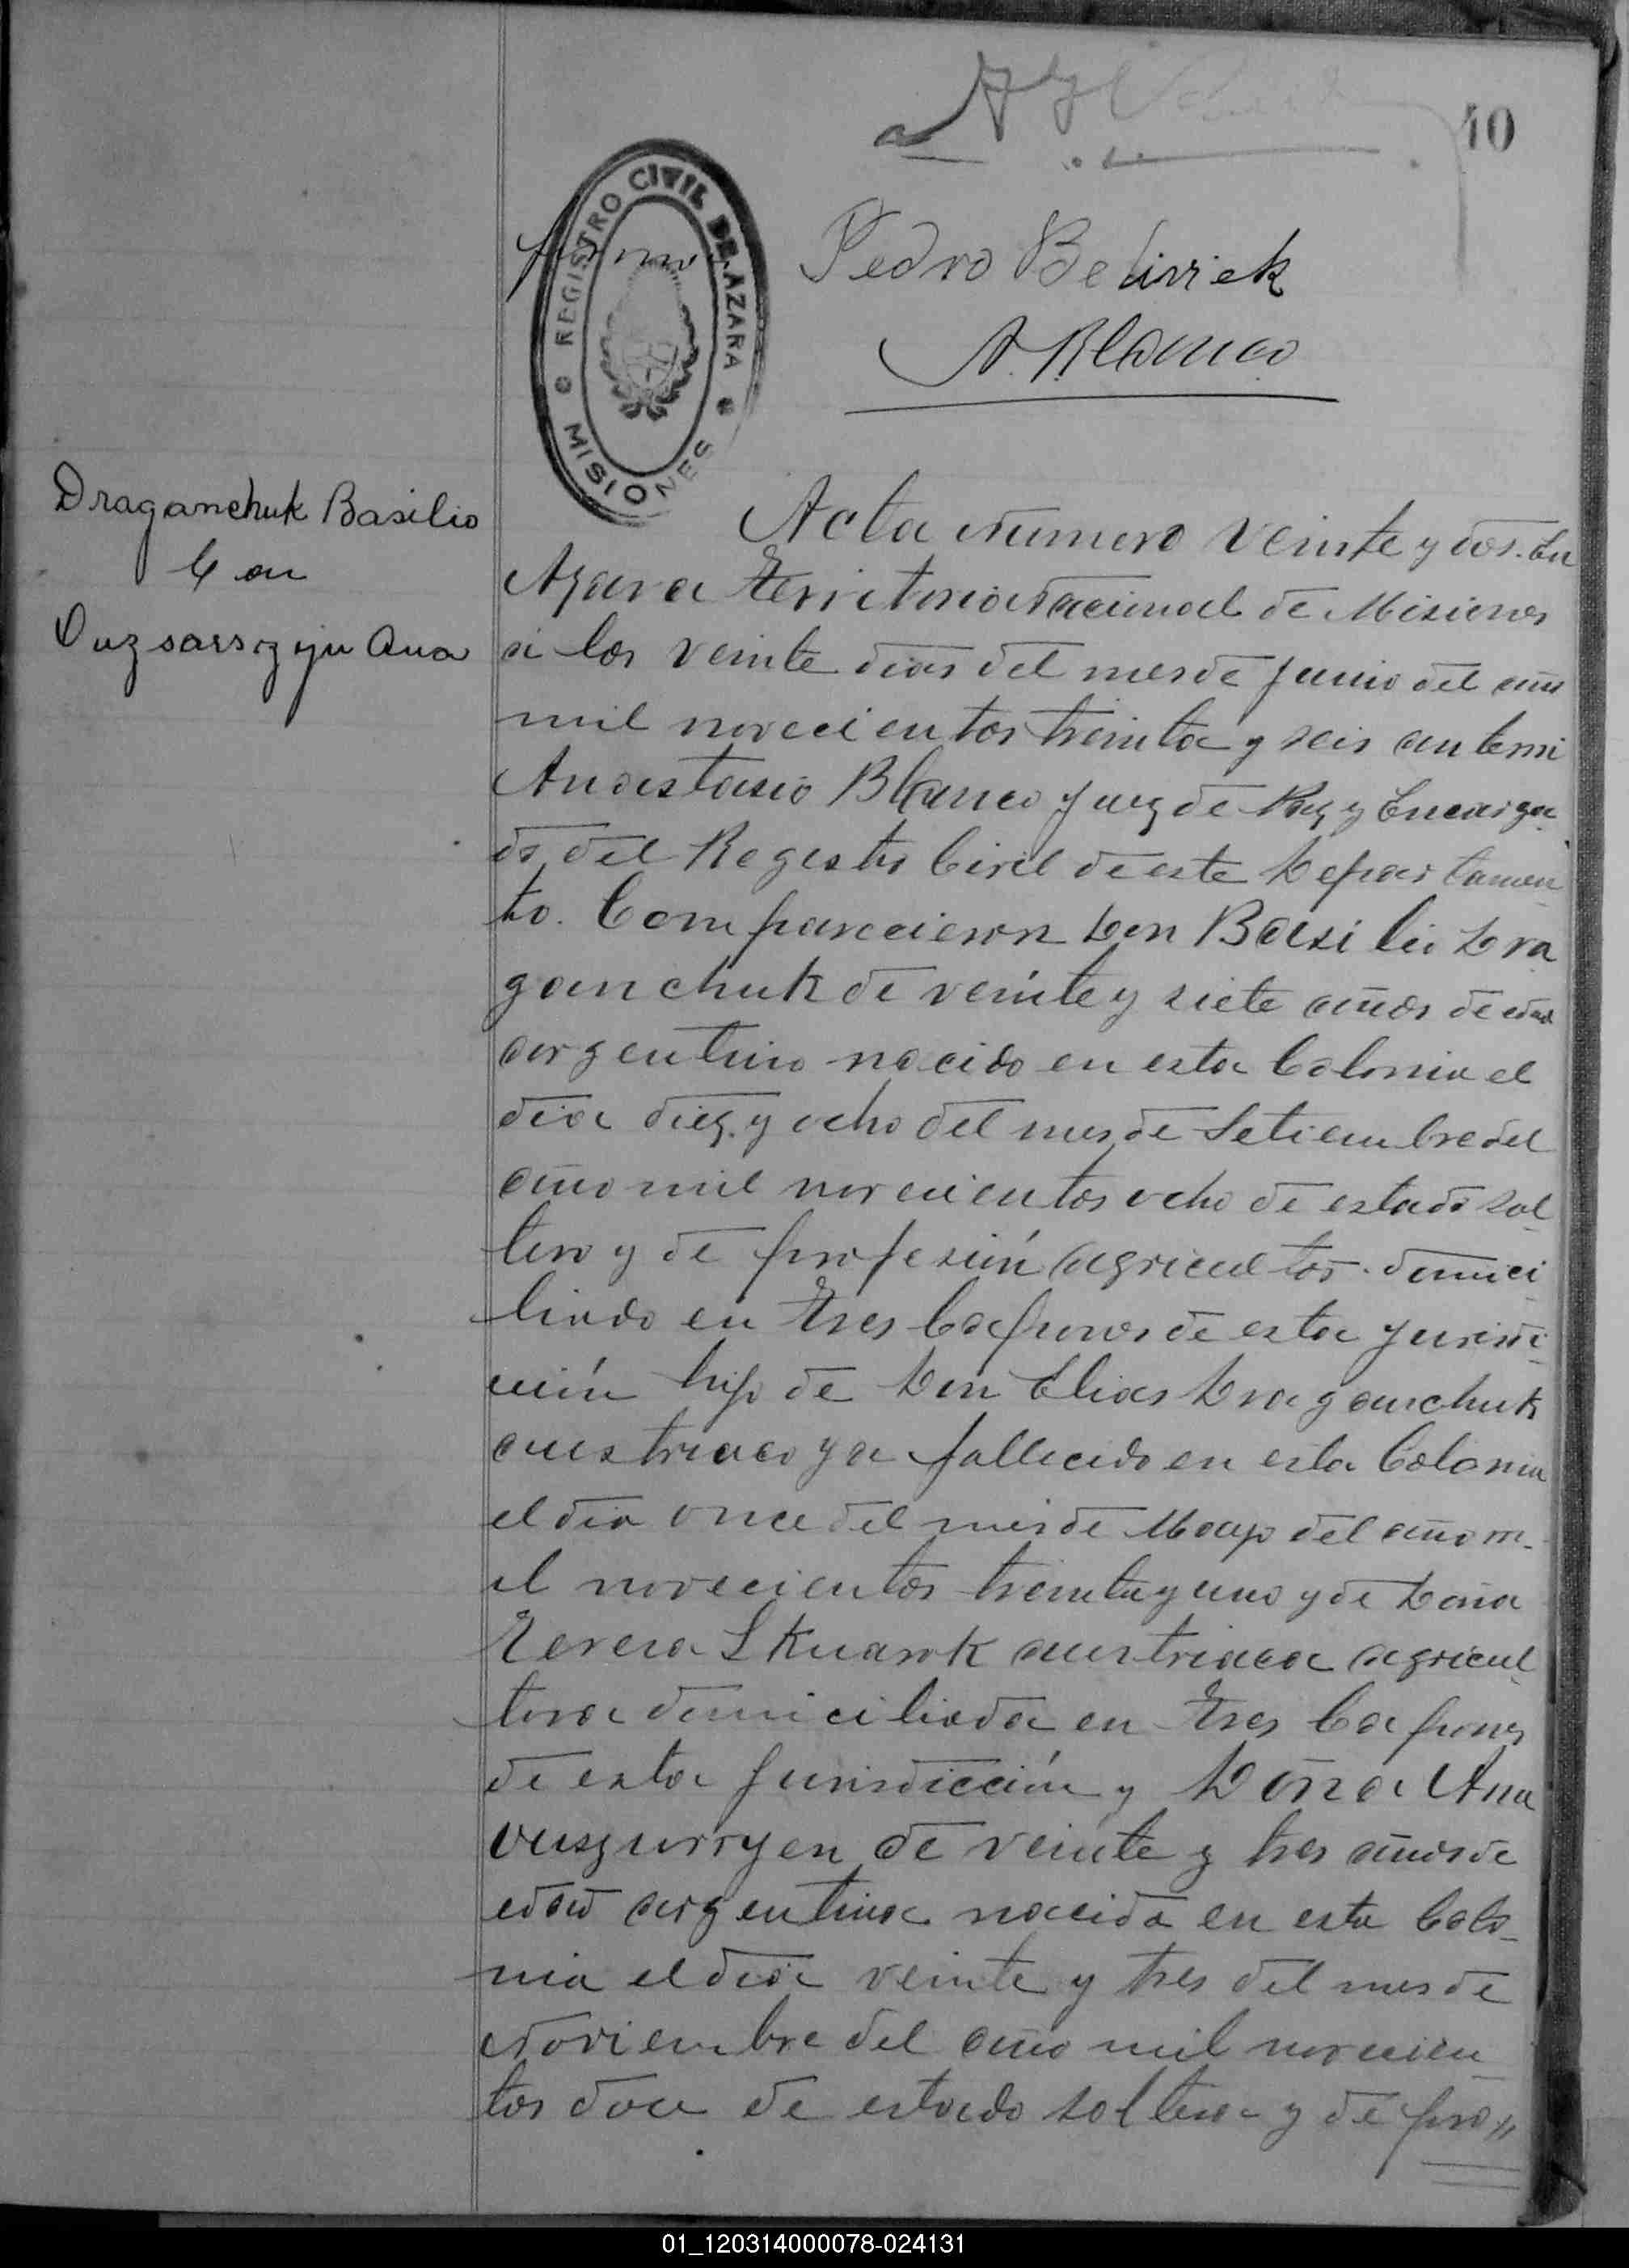 40
REGISTRO CIVIL DE AZARA
MISIONES
Pedro
A. Blanco
Draganchuk Basilio
Con
Ana
Acta Número Veinte y dos. En
Azara Territorio Nacional de Misiones
a los veinte dias del mes de Junio del año
mil novecientos treinta y seis ante mi
Anastasio Blanco Juez de Paz y Encarga
do del Registro Civil de este Departamen
to. Comparecieron Don Basilio Dra
ganchuk de veinte y siete años de edad
argentino nacido en esta Colonia el
dia diez y ocho del mes de Setiembre del
año mil novecientos ocho de estado sol
tero y de profesión agricultor domici
liado en Tres Capones de esta jurisdi
ción hijo de Don Elias Draganchuk
austriaco ya fallecido en esta Colonia
el dia once del mes de Mayo del año m
il novecientos treinta y uno y de Doña
austriaca agricul
tora domiciliada en Tres Capones
de esta jurisdicción y Doña Ana
de veinte y tres años de
edad argentina nacida en esta Colo
nia el dia veinte y tres del mes de
Noviembre del año mil novecien
tos doce de estado soltera y de pro
01_120314000078-024131